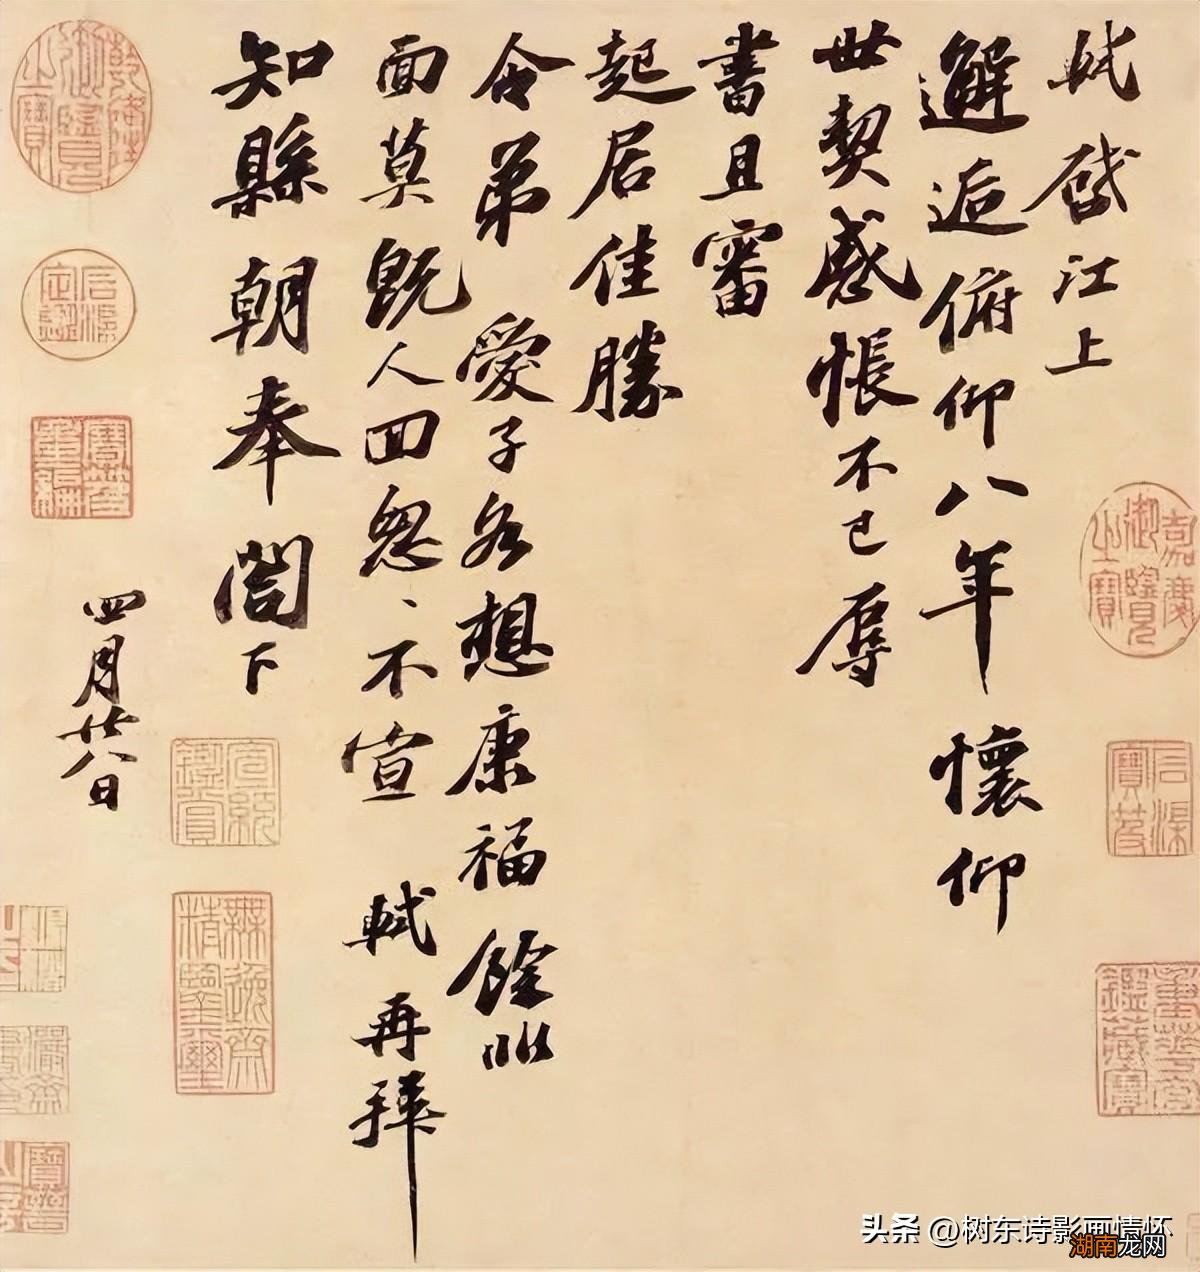 軾啓江上
邂逅俯仰八年懷仰
世契感悵不已辱
書且審
起居佳勝
令弟愛子各想康福餘非
面莫既人回怱、不宣 軾再拜
知縣朝奉閤下
四月廿八日
嘉慶御覽之寶
石渠寶笈
重華宮鑑藏寶
乾隆御覽之寶
石渠定鑑
寶笈重編
宣統鑑賞
無逸齋精鑒璽
头条 @树东诗影画情怀
湖南龙网